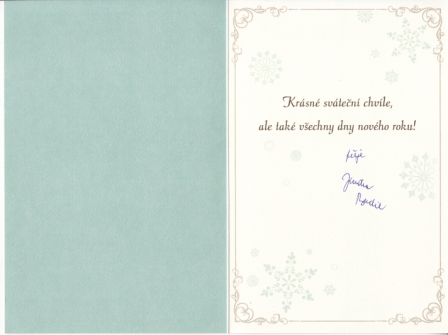 Krásné sváteční chvíle,
ale také všechny dny nového roku!
přeje